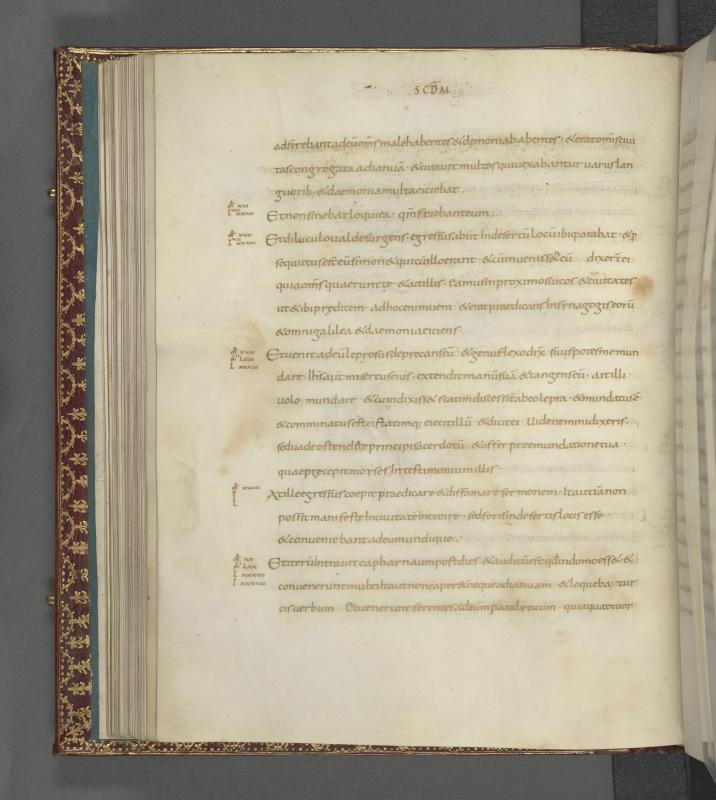 SCDM
adferebant adeū om̄s male habentes & demonia habentes · & erat om̄is civi
tas congregata ad ianuā · & curavit multos qui vexabantur variis lan
guorib; & daemonia multa eiciebat
Et non sinebat loqui ea · qm̄ sciebant eum
Et diluculo valde surgens · egressus abiit In desertū locū ibiq; orabat · & p
secutus est eū simon & qui cū illo erant · & cū invenissent eū dixer̄t ei
quia om̄s quaerunt te & ait illis · eamus in proximos vicos & civitates
ut & ibi predicem · ad hoc enim veni · & erat praedicans In synagogis eorū
& omni galilea & daemonia eiciens
Et venit ad eū leprosus deprecans eū · & genu flexo dix̄ · si vis potes me mun
dare · Ih̄s aūt misertus eius · extendit manū suā & tangens eū · ait illi ·
volo mundare · & cū dixisset statim discessit ab eo lepra · & mundatus ē
& comminatus est ei statimq; eiecit illū & dicit ei · Vide nemini dixeris ·
sed vade ostende te principi sacerdotū & offer pro emundatione tua ·
quae precepit moyses In testimonium illis
At ille egressus coepit praedicare & diffamare sermonem · Ita ut iā non
possit manifeste In civitatē Introire · sed foris in desertis locis esse
& conveniebant ad eum undique ·
Et iterū Intravit capharnaum post dies & auditū est qd̄ in domo esset · &
convenerunt multi Ita ut non caper& neque ad ianuam & loquebatur
eis verbum · Et venerunt ferentes ad eum paralyticum · qui a quattuor